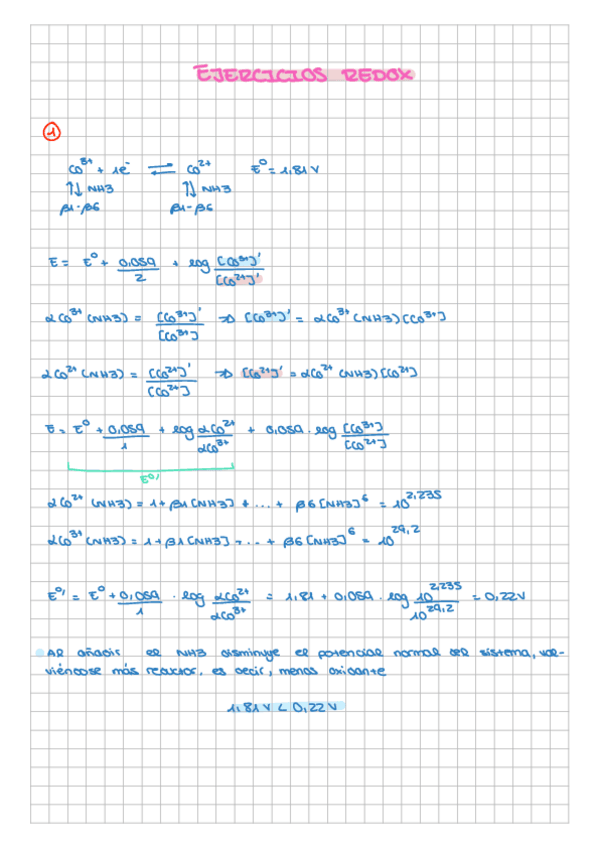 EJERCICIOS REDOX
1
Co³⁺ + 1e⁻ ⇌ Co²⁺ E⁰ = 1,81 V
⇅ NH3 ⇅ NH3
β1-β6 β1-β6
E = E⁰ + 0,059/2 + log [Co³⁺]'/[Co²⁺]'
αCo³⁺ (NH3) = [Co³⁺]'/[Co³⁺] ⇒ [Co³⁺]' = αCo³⁺ (NH3) [Co³⁺]
αCo²⁺ (NH3) = [Co²⁺]'/[Co²⁺] ⇒ [Co²⁺]' = αCo²⁺ (NH3) [Co²⁺]
E = E⁰ + 0,059/1 + log αCo²⁺/αCo³⁺ + 0,059 · log [Co³⁺]/[Co²⁺]
E⁰'
αCo²⁺ (NH3) = 1 + β1 [NH3] + ... + β6 [NH3]⁶ = 10^2,235
αCo³⁺ (NH3) = 1 + β1 [NH3] + ... + β6 [NH3]⁶ = 10^29,2
E⁰' = E⁰ + 0,059/1 · log αCo²⁺/αCo³⁺ = 1,81 + 0,059 · log 10^2,235/10^29,2 = 0,22V
Al añadir el NH3 disminuye el potencial normal del sistema, vol-
viéndose más reductor, es decir, menos oxidante
1,81 V < 0,22 V